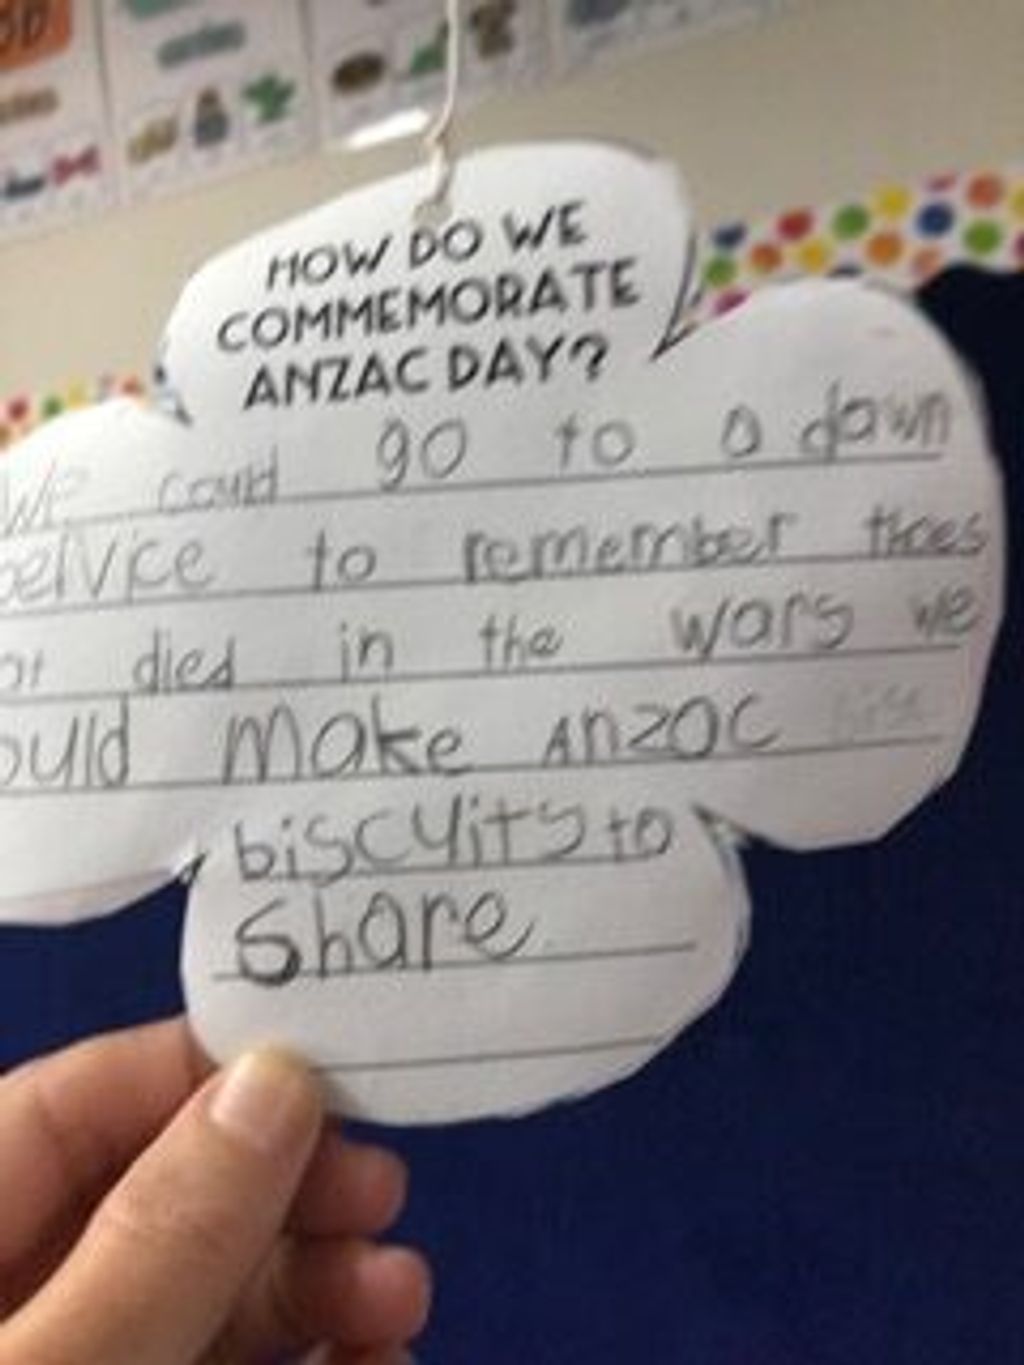 HOW DO WE
COMMEMORATE
ANZAC DAY?
We could go to a dawn
service to remember thoes
died in the wars we
ould make anzac
biscuits to
share